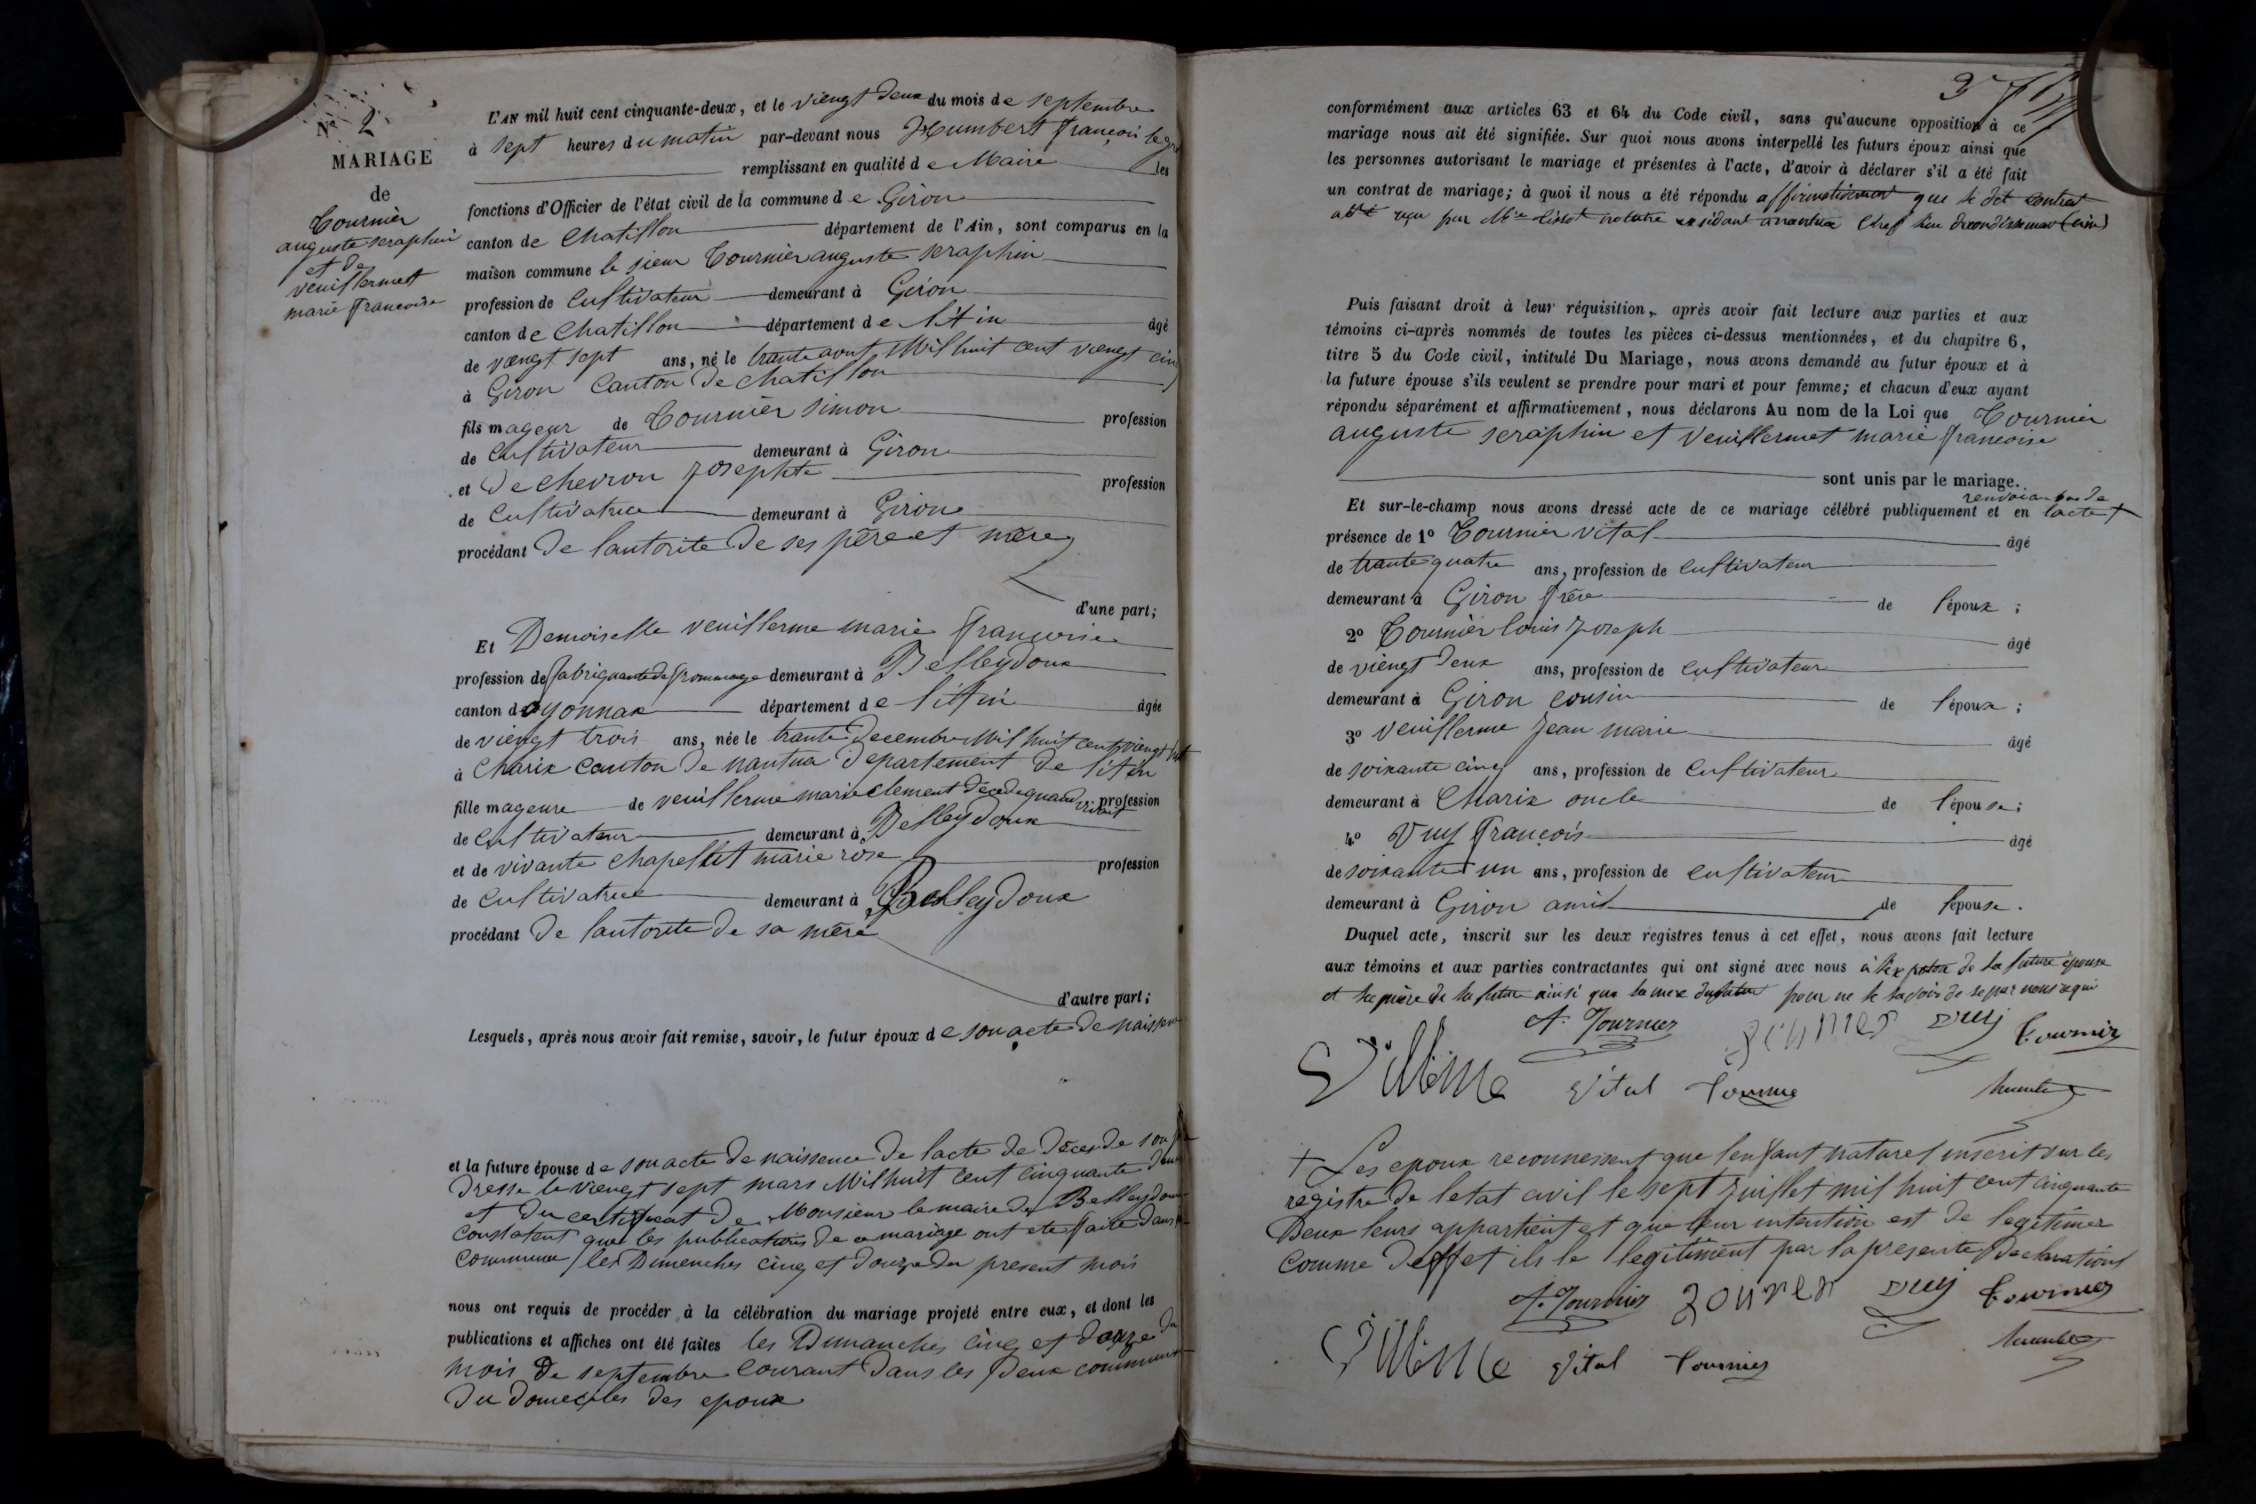 Nº 2
MARIAGE
de
Tournier
auguste seraphin
et de
veuillermet
marie francoise
L'AN mil huit cent cinquante-deux, et le viengt deux du mois de septembre
à sept heures du matin par-devant nous Humbert françois
remplissant en qualité de Maire les
fonctions d'Officier de l'état civil de la commune de Giron
canton de Chatillon département de l'Ain, sont comparus en la
maison commune le sieur Tournier auguste seraphin
profession de Cultivateur demeurant à Giron
canton de Chatillon département de l'Ain âgé
de vengt sept ans, né le trante aout Mil huit cent viengt cinq
à Giron Canton de chatillon
fils mageur de Tournier simon profession
de Cultivateur demeurant à Giron
et de chevron josephte profession
de Cultivatrice demeurant à Giron
procédant de lautorite de ses père et mère
d'une part;
Et Demoiselle veuillerme marie francoise
profession de fabriquante de frommage demeurant à Belleydoux
canton doyonnax département de l'Ain âgée
de viengt trois ans, née le trante Decembre Mil huit cent viengt huit
à Charix canton de nantua departement de l'Ain
fille mageure de veuillerme marie clement décédé quand vivant profession
de Cultivateur demeurant à Belleydoux
et de vivante chapellut marie rose profession
de Cultivatrice demeurant à Belleydoux
procédant de lautorite de sa mère
d'autre part;
Lesquels, après nous avoir fait remise, savoir, le futur époux de son acte de naissance
et la future épouse de son acte de naissence de lacte de déces de son
dresse le viengt sept mars Mil huit cent cinquante deux
et du certificat de Monsieur le maire de Belleydoux
constatent que les publications de ce mariage ont ete faite dans
commune les Dimenches cinq et douze du present mois
nous ont requis de procéder à la célébration du mariage projeté entre eux, et dont les
publications et affiches ont été faites les Dimanches cinq et douze du
mois de septembre courant dans les deux communes
du domeciles des epoux
conformément aux articles 63 et 64 du Code civil, sans qu'aucune opposition à ce
mariage nous ait été signifiée. Sur quoi nous avons interpellé les futurs époux ainsi que
les personnes autorisant le mariage et présentes à l'acte, d'avoir à déclarer s'il a été fait
un contrat de mariage; à quoi il nous a été répondu affirmativement que le dit contrat
a été reçu par Me notaire residant a nantua Chef lieu darondissement (ain)
Puis faisant droit à leur réquisition, après avoir fait lecture aux parties et aux
témoins ci-après nommés de toutes les pièces ci-dessus mentionnées, et du chapitre 6,
titre 5 du Code civil, intitulé Du Mariage, nous avons demandé au futur époux et à
la future épouse s'ils veulent se prendre pour mari et pour femme; et chacun d'eux ayant
répondu séparément et affirmativement, nous déclarons Au nom de la Loi que Tournier
auguste seraphin et veuillermet marie francoise
sont unis par le mariage.
renvoi au bas de
Et sur-le-champ nous avons dressé acte de ce mariage célébré publiquement et en lacte +
présence de 1º Tournier vital âgé
de trante quatre ans, profession de cultivateur
demeurant à Giron frère de lépoux ;
2º Tournier louis joseph âgé
de viengt deux ans, profession de cultivateur
demeurant à Giron cousin de lépoux ;
3º veuillerme jean marie âgé
de soixante cinq ans, profession de Cultivateur
demeurant à Charix oncle de lépouse ;
4º Vuy françois âgé
de soixante un ans, profession de cultivateur
demeurant à Giron amit de lépouse.
Duquel acte, inscrit sur les deux registres tenus à cet effet, nous avons fait lecture
aux témoins et aux parties contractantes qui ont signé avec nous de la future épouse
et la mère de la future ainsi que la mere du futur pour ne le savoir de se par nous requi
A. Tournier Vuy Tournier
Vital Tournier Humbert
+ Les epoux reconnessent que lenfant naturel inscrit sur les
registre de letat civil le sept juillet mil huit cent cinquante
Deux leurs appartient et que leur intention est de legitimer
comme deffet ils le legitiment par la presente declaration
A. Tournier Vuy Tournier
Vital Tournier Humbert